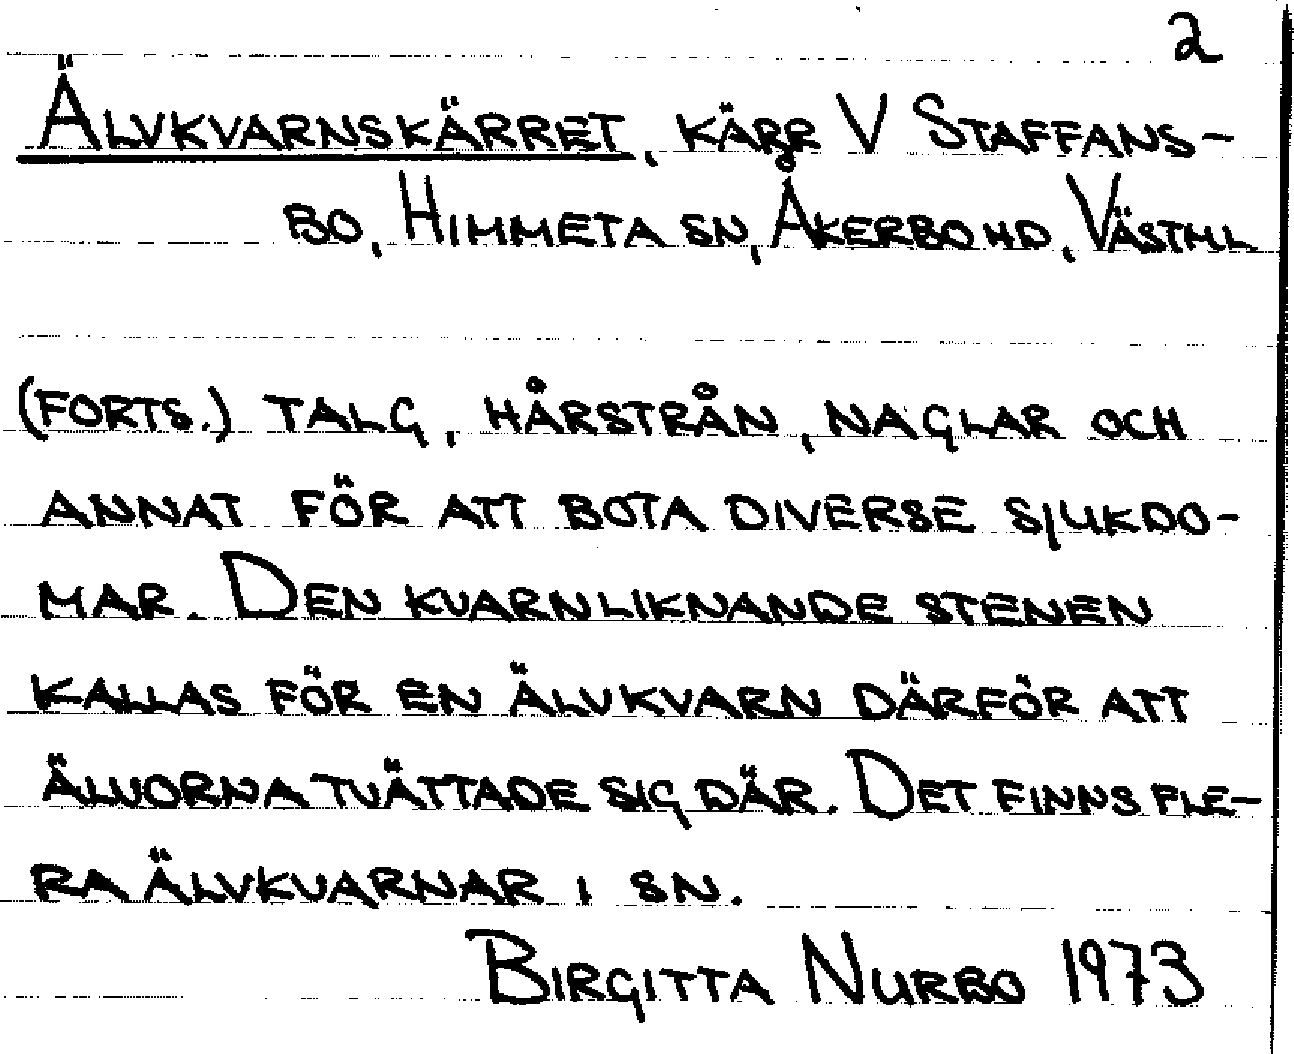 2
Älvkvarnskärret, kärr V Staffans-
bo, Himmeta sn, Åkerbo hd, Västml
(forts.) talg, hårstrån, naglar och
annat för att bota diverse sjukdo-
mar. Den kvarnliknande stenen
kallas för en älvkvarn därför att
älvorna tvättade sig där. Det finns fle-
ra älvkvarnar i sn.
Birgitta Nurbo 1973